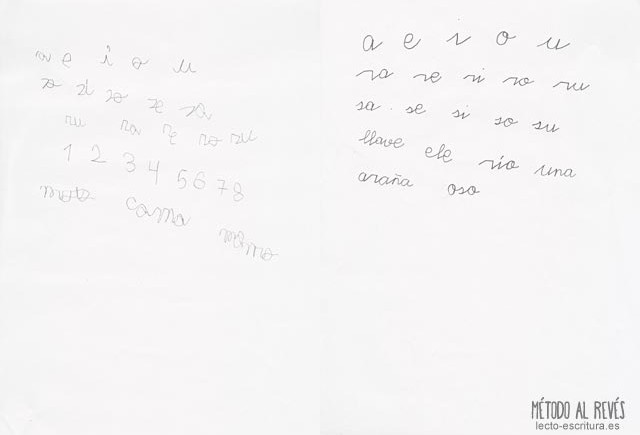 a e i o u
so si so se sa
ru ra re ro su
1 2 3 4 5 6 7 8
moto cama
a e i o u
ra re ri ro ru
sa. se si so su
llave ele río una
araña oso
MÉTODO AL REVÉS
lecto-escritura.es